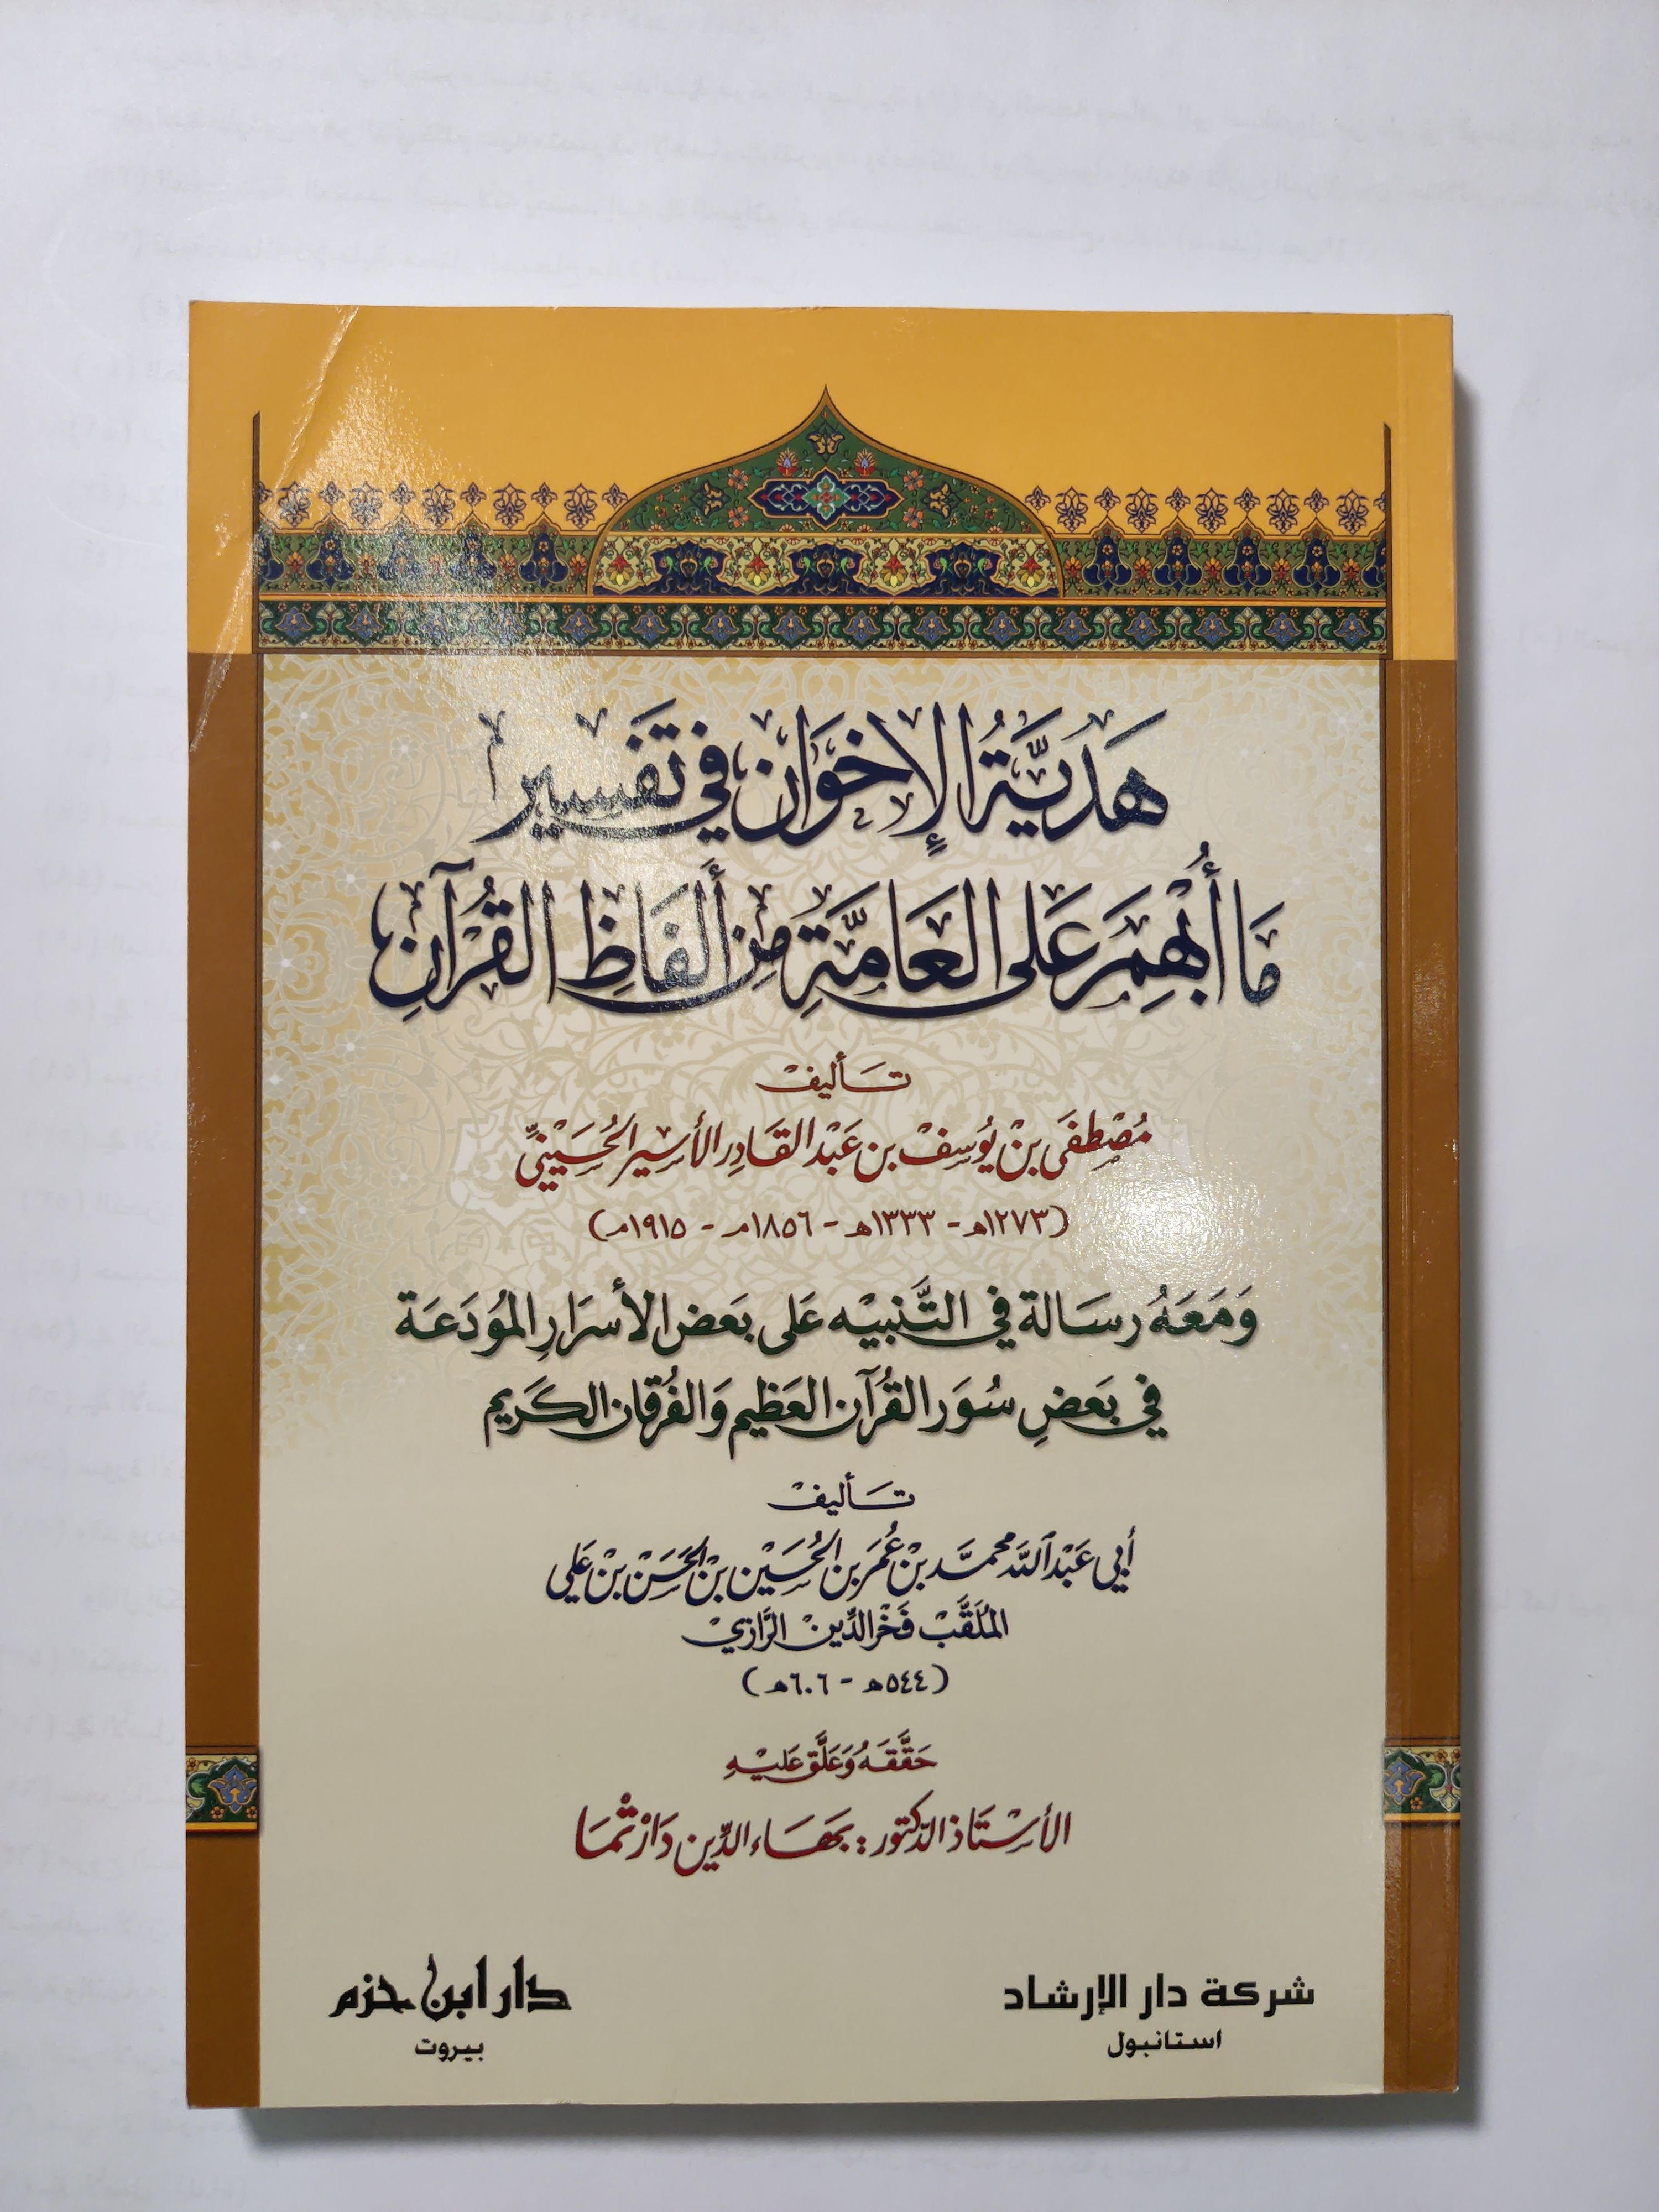 هَدِيَّةُ الإِخوَان في تَفسِير
مَا أُبْهِمَ عَلى العَامَّةِ مِن أَلفَاظِ القُرآنِ
تأليف
مُصْطفَى بنْ يُوسِفْ بن عَبْد القَادِر الأسير الحُسَيْنيِّ
(١٢٧٣هـ - ١٣٣٣هـ - ١٨٥٦م - ١٩١٥م)
وَمَعَهُ رسَالة في التَّنبيْه عَلى بعَض الأسرَارِ المُودَعَة
في بَعضِ سُوَر القُرآن العَظيم وَالفُرقان الكَريم
تأليف
أبي عَبْد الله محمَّد بنْ عُمَر بن الحُسَيْن بنْ الحَسَنْ بنْ عَلي
المُلَقَّبْ فَخْر الدِّين الرَّازي
(٥٤٤هـ - ٦٠٦هـ)
حَقَّقَهُ وَعَلَّق عَليْهِ
الأسْتَاذ الدّكتور: بهَاء الدِّين دَارْتْمَا
شركة دار الإرشاد
استانبول
دار ابن حزم
بيروت